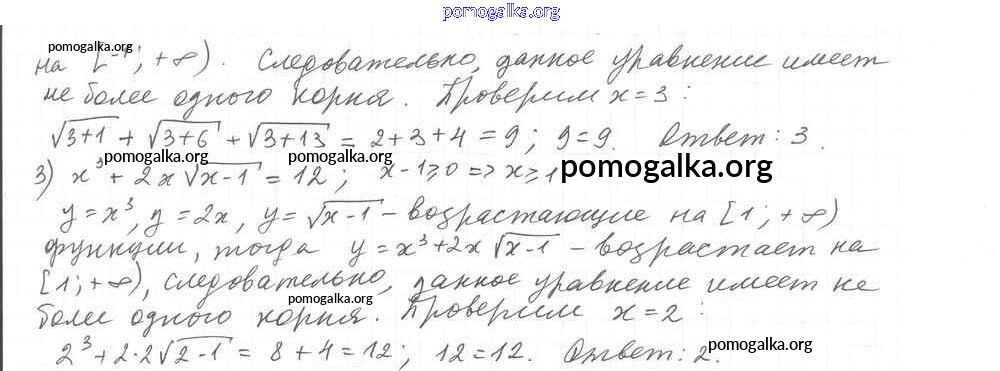 pomogalka.org
pomogalka.org
на [-1; +∞). Следовательно, данное уравнение имеет
не более одного корня. Проверим x=3:
√(3+1) + √(3+6) + √(3+13) = 2+3+4 = 9; 9=9. Ответ: 3.
pomogalka.org pomogalka.org
3) x³ + 2x√(x-1) = 12; x-1≥0 => x≥1 pomogalka.org
y=x³, y=2x, y=√(x-1) – возрастающие на [1; +∞)
функции, тогда y=x³+2x√(x-1) – возрастает на
[1; +∞), следовательно, данное уравнение имеет не
pomogalka.org
более одного корня. Проверим x=2:
2³+2·2√(2-1) = 8+4=12; 12=12. Ответ: 2.
pomogalka.org